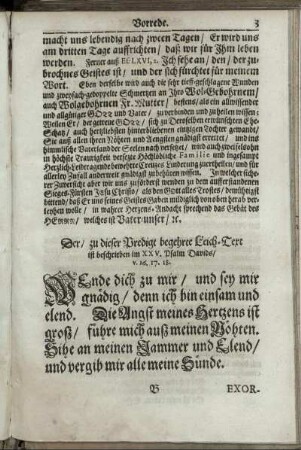 Vorrede. 3
macht uns lebendig nach zween Tagen/ Er wird uns
am dritten Tage auffrichten/ daß wir für Ihm leben
werden. Ferner auß Ich sehe an/ den/ der zu-
brochnes Geistes ist/ und der sich fürchtet für meinem
Wort. Eben derselbe wird auch die sehr tieff-geschlagene Wunden
und zweyfach-gedoppelte Schmertzen an Ihro Wol-Gebohrnem/
auch Wolgebohrnen Fr. Mutter/ bestens/ als ein allwissender
und allgütiger GOtt und Vater/ zu verbinden und zu heilen wissen:
Wessen Er/ der getreue GOtt/ sich zu Derselben ertraurischen
Schatz/ auch hertzliebsten hinterbliebenen einzigen Tochter gewandt/
Sie auß allen ihren Nöhten und Aengsten gnädigst errettet/ und ins
himmlische Vaterland der Seelen nach versetzet/ wird auch zweifelsohn
in höchste Traurigkeit versetzte Hochlöbliche Familie und ingesammt
Hertzlich-Leidtragende bewehrte Creutzes Linderung zuertheilen/ und für
allerley Unfall anderweit gnädigst zu behüten wissen. In welcher siche-
rer Zuversicht aber wir uns zuforderst wenden zu dem aufferstandenen
Sieges-Fürsten Jesu Christo/ als den Gott alles Trostes/ demühtigst
bittend/ daß Er uns seines Geistes Gaben mildiglich von oben herab ver-
leyhen wolle/ in wahrer Hertzens-Andacht sprechend das Gebät des
HErren/ welches ist Vater unser/ ꝛc.
Der/ zu dieser Predigt begehrte Leich-Text
ist beschrieben im XXV. Psalm Davids/
v. 16. 17. 18.
WEnde dich zu mir/ und sey mir
gnädig/ denn ich bin einsam und
elend. Die Angst meines Hertzens ist
groß/ führe mich auß meinen Nöhten.
Sihe an meinen Jammer und Elend/
und vergib mir alle meine Sünde.
B EXOR-